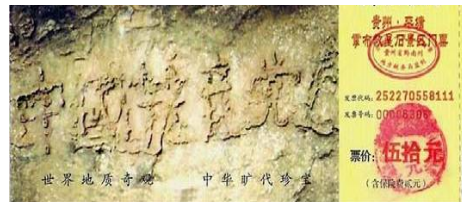 中国共产党亡
世界地质奇观 中华旷代珍宝
贵州·平塘
掌布藏字石景区门票
贵州省黔南州
发票代码: 252270558111
发票号码: 00006306
票价: 伍拾元
(含保险费贰元)